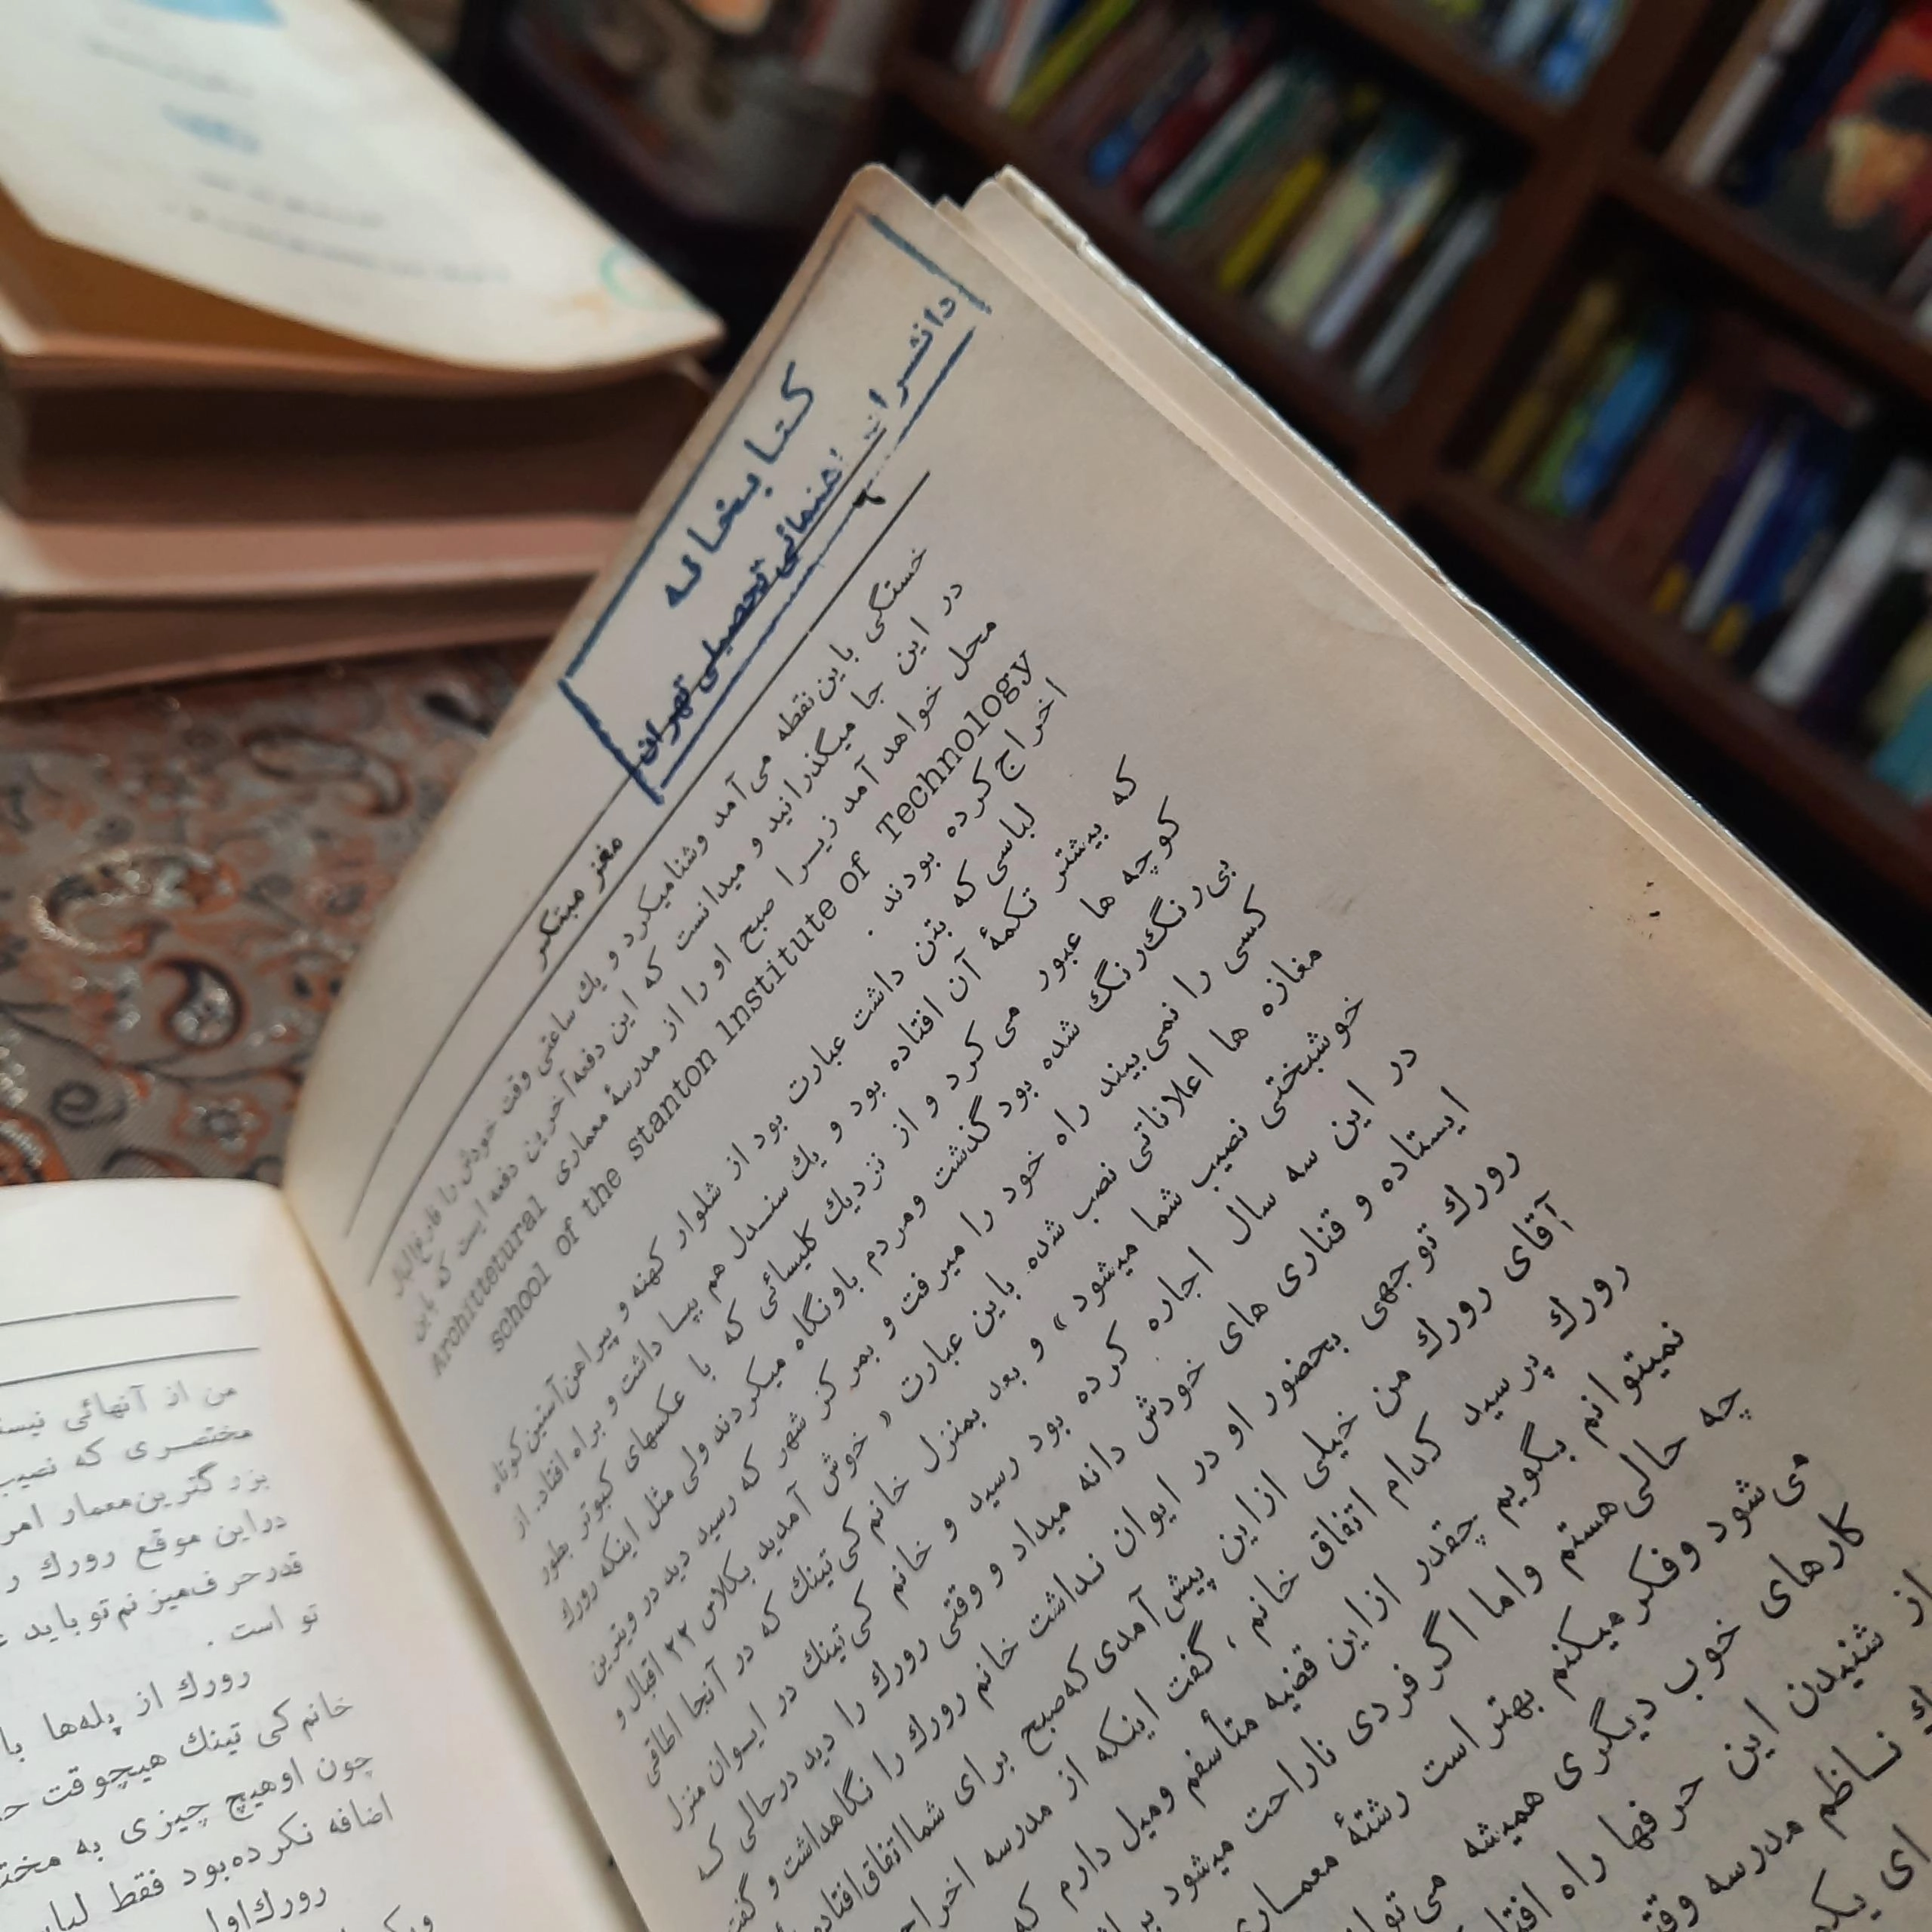 کتابخانه
دانشرای راهنمائی تحصیلی تهران
۶
مغز مبتکر
خستگی باین نقطه می‌آمد وشنامیکرد و یك ساعتی وقت خودش را فارغ‌البال
در این جا میگذرانید و میدانست که این دفعه آخرین دفعه ایست که باین
محل خواهد آمد زیرا صبح او را از مدرسهٔ معماری Archittetural
school of the stanton institute of Technology
اخراج کرده بودند .
لباسی که بتن داشت عبارت بود از شلوار کهنه و پیراهن‌آستین‌کوتاه
که بیشتر تکمهٔ آن افتاده بود و یك سندل هم بپا داشت و براه افتاد. از
کوچه ها عبور می کرد و از نزدیك کلیسائی که با عکسهای کبوتر بطور
بی‌رنگ‌رنگ شده بود گذشت ومردم باونگاه میکردند ولی مثل اینکه رورك
کسی را نمی‌بیند راه خود را میرفت و بمرکز شهر که رسید دید در ویترین
مغازه ها اعلاناتی نصب شده باین عبارت « خوش آمدید بکلاس ۲۲ اقبال و
خوشبختی نصیب شما میشود » و بعد بمنزل خانم کی تینك که در آنجا اطاقی
در این سه سال اجاره کرده بود رسید و خانم کی‌تینك در ایوان منزل
ایستاده و قناری های خودش دانه میداد و وقتی رورك را دید درحالی که
رورك توجهی بحضور او در ایوان نداشت خانم رورك را نگاهداشت و گفت
آقای رورك من خیلی ازاین پیش‌آمدی که‌صبح برای شمااتفاق‌افتاده
رورك پرسید کدام اتفاق خانم ، گفت اینکه از مدرسه اخراج
نمیتوانم بگویم چقدر ازاین قضیه متأسفم ومیل دارم که
چه حالی‌هستم واما اگرفردی ناراحت میشود
می شود وفکرمیکنم بهتراست رشتهٔ معماری
کارهای خوب دیگری همیشه
از شنیدن این حرفها راه
ناظم مدرسه
من از آنهائی
مختصری که نصیب
بزرگترین‌معمار
دراین موقع رورك
قدرحرف‌میزنم‌تو باید
تو است .
رورك از پله‌ها
خانم کی تینك هیچوقت
چون اوهیچ چیزی به
اضافه نکرده‌بود فقط
رورك‌اول